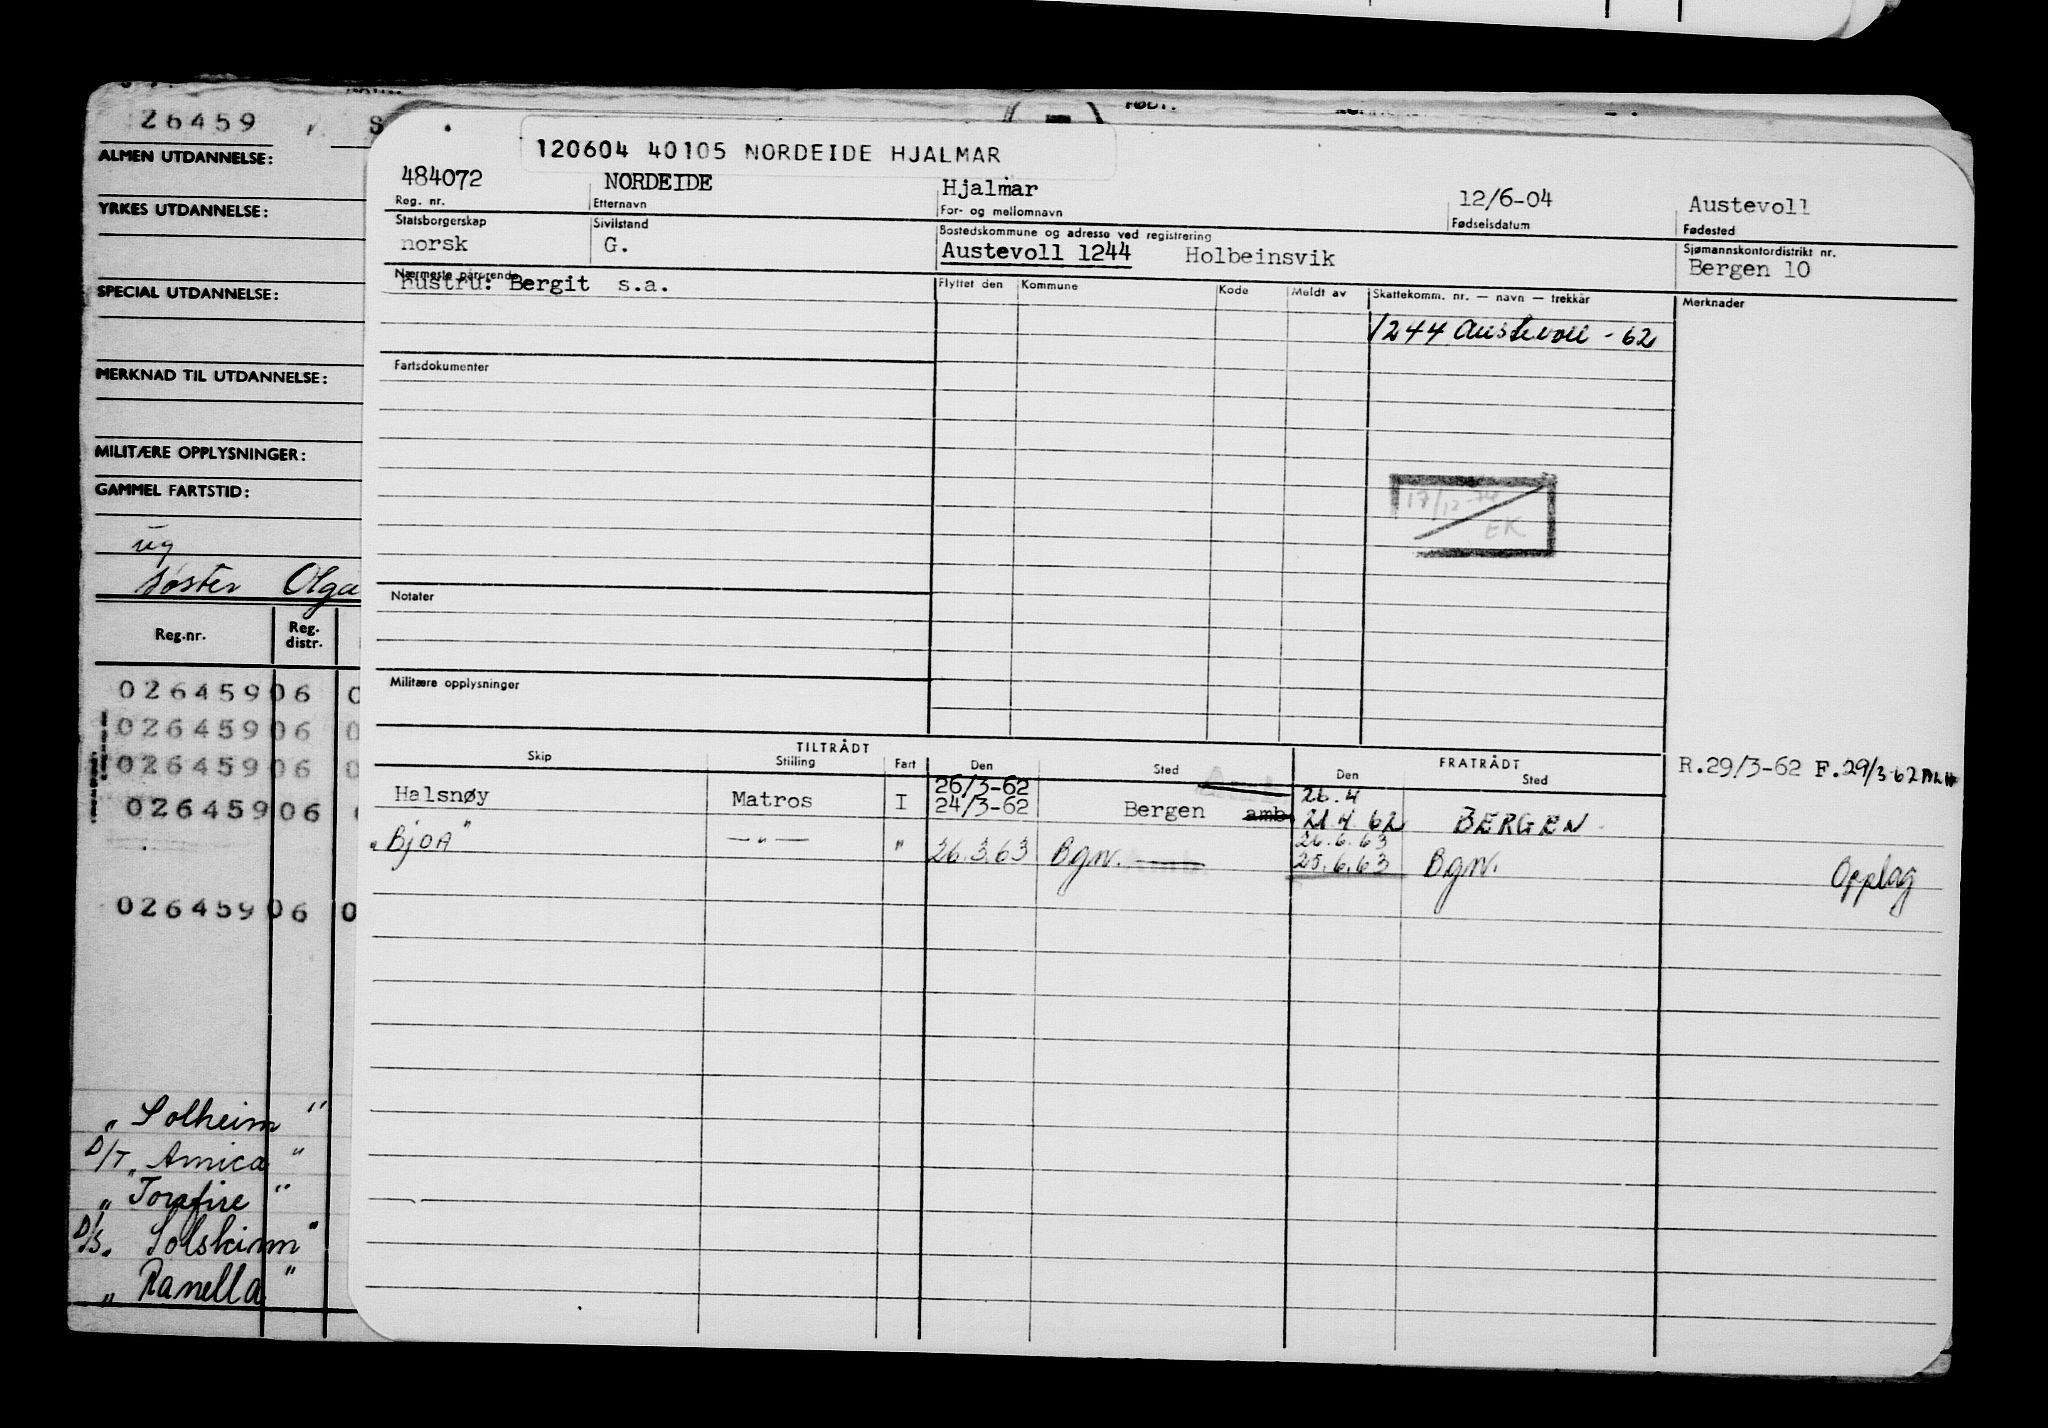 26459
ALMEN UTDANNELSE:
YRKES UTDANNELSE:
SPECIAL UTDANNELSE:
MERKNAD TIL UTDANNELSE:
MILITÆRE OPPLYSNINGER:
GAMMEL FARTSTID:
ug
søster Olga
Reg.nr. Reg. distr.
026459 06 0
026459 06 0
026459 06 0
026459 06
026459 06 0
„ Solheim "
D/T „ Amica "
„ Torafire "
D/S. Solskinn "
„ Ranella "
FØDT:
120604 40105 NORDEIDE HJALMAR
484072 NORDEIDE Hjalmar 12/6-04 Austevoll
Reg. nr. Etternavn For- og mellomnavn Fødselsdatum Fødested
Statsborgerskap Sivilstand Bostedskommune og adresse ved registrering Sjømannskontordistrikt nr.
norsk G. Austevoll 1244 Holbeinsvik Bergen 10
Nærmeste pårørende
Hustru: Bergit s.a.
Flyttet den Kommune Kode Meldt av Skattekomm. nr. — navn — trekkår Merknader
1244 Austevoll - 62
Fartsdokumenter
17/12-74
EK
Notater
Militære opplysninger
TILTRÅDT FRATRÅDT
Skip Stilling Fart Den Sted Den Sted
R.29/3-62 F.29/3-62
26/3-62 26.4
Halsnøy Matros I 24/3-62 Bergen amb 21.4.62 BERGEN
26.6.63
„BjOA" —"— " 26.3.63 Bgn. Amb. 25.6.63 Bgn. Opplag